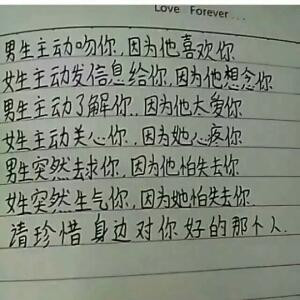 Love Forever...
男生主动吻你,因为他喜欢你
女生主动发信息给你,因为她想念你
男生主动了解你,因为他太爱你
女生主动关心你,因为她心疼你
男生突然去求你,因为他怕失去你
女生突然生气你,因为她怕失去你
清珍惜身边对你好的那个人.